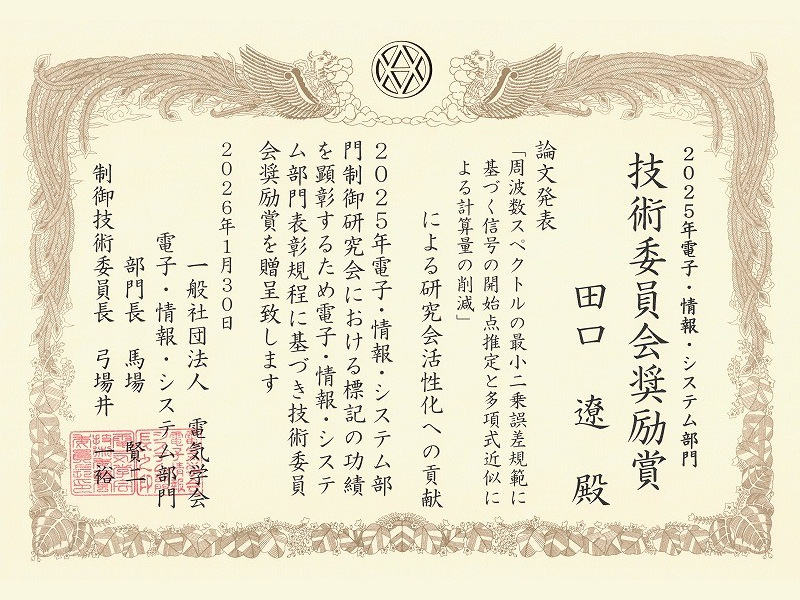 2025年電子・情報・システム部門
技術委員会奨励賞
田口 遼 殿
論文発表
「周波数スペクトルの最小二乗誤差規範に
基づく信号の開始点推定と多項式近似に
よる計算量の削減」
による研究会活性化への貢献
2025年電子・情報・システム部
門制御研究会における標記の功績
を顕彰するため電子・情報・システ
ム部門表彰規程に基づき技術委員
会奨励賞を贈呈致します
2026年1月30日
一般社団法人 電気学会
電子・情報・システム部門
部門長 馬場 賢二
制御技術委員長 弓場井 一裕